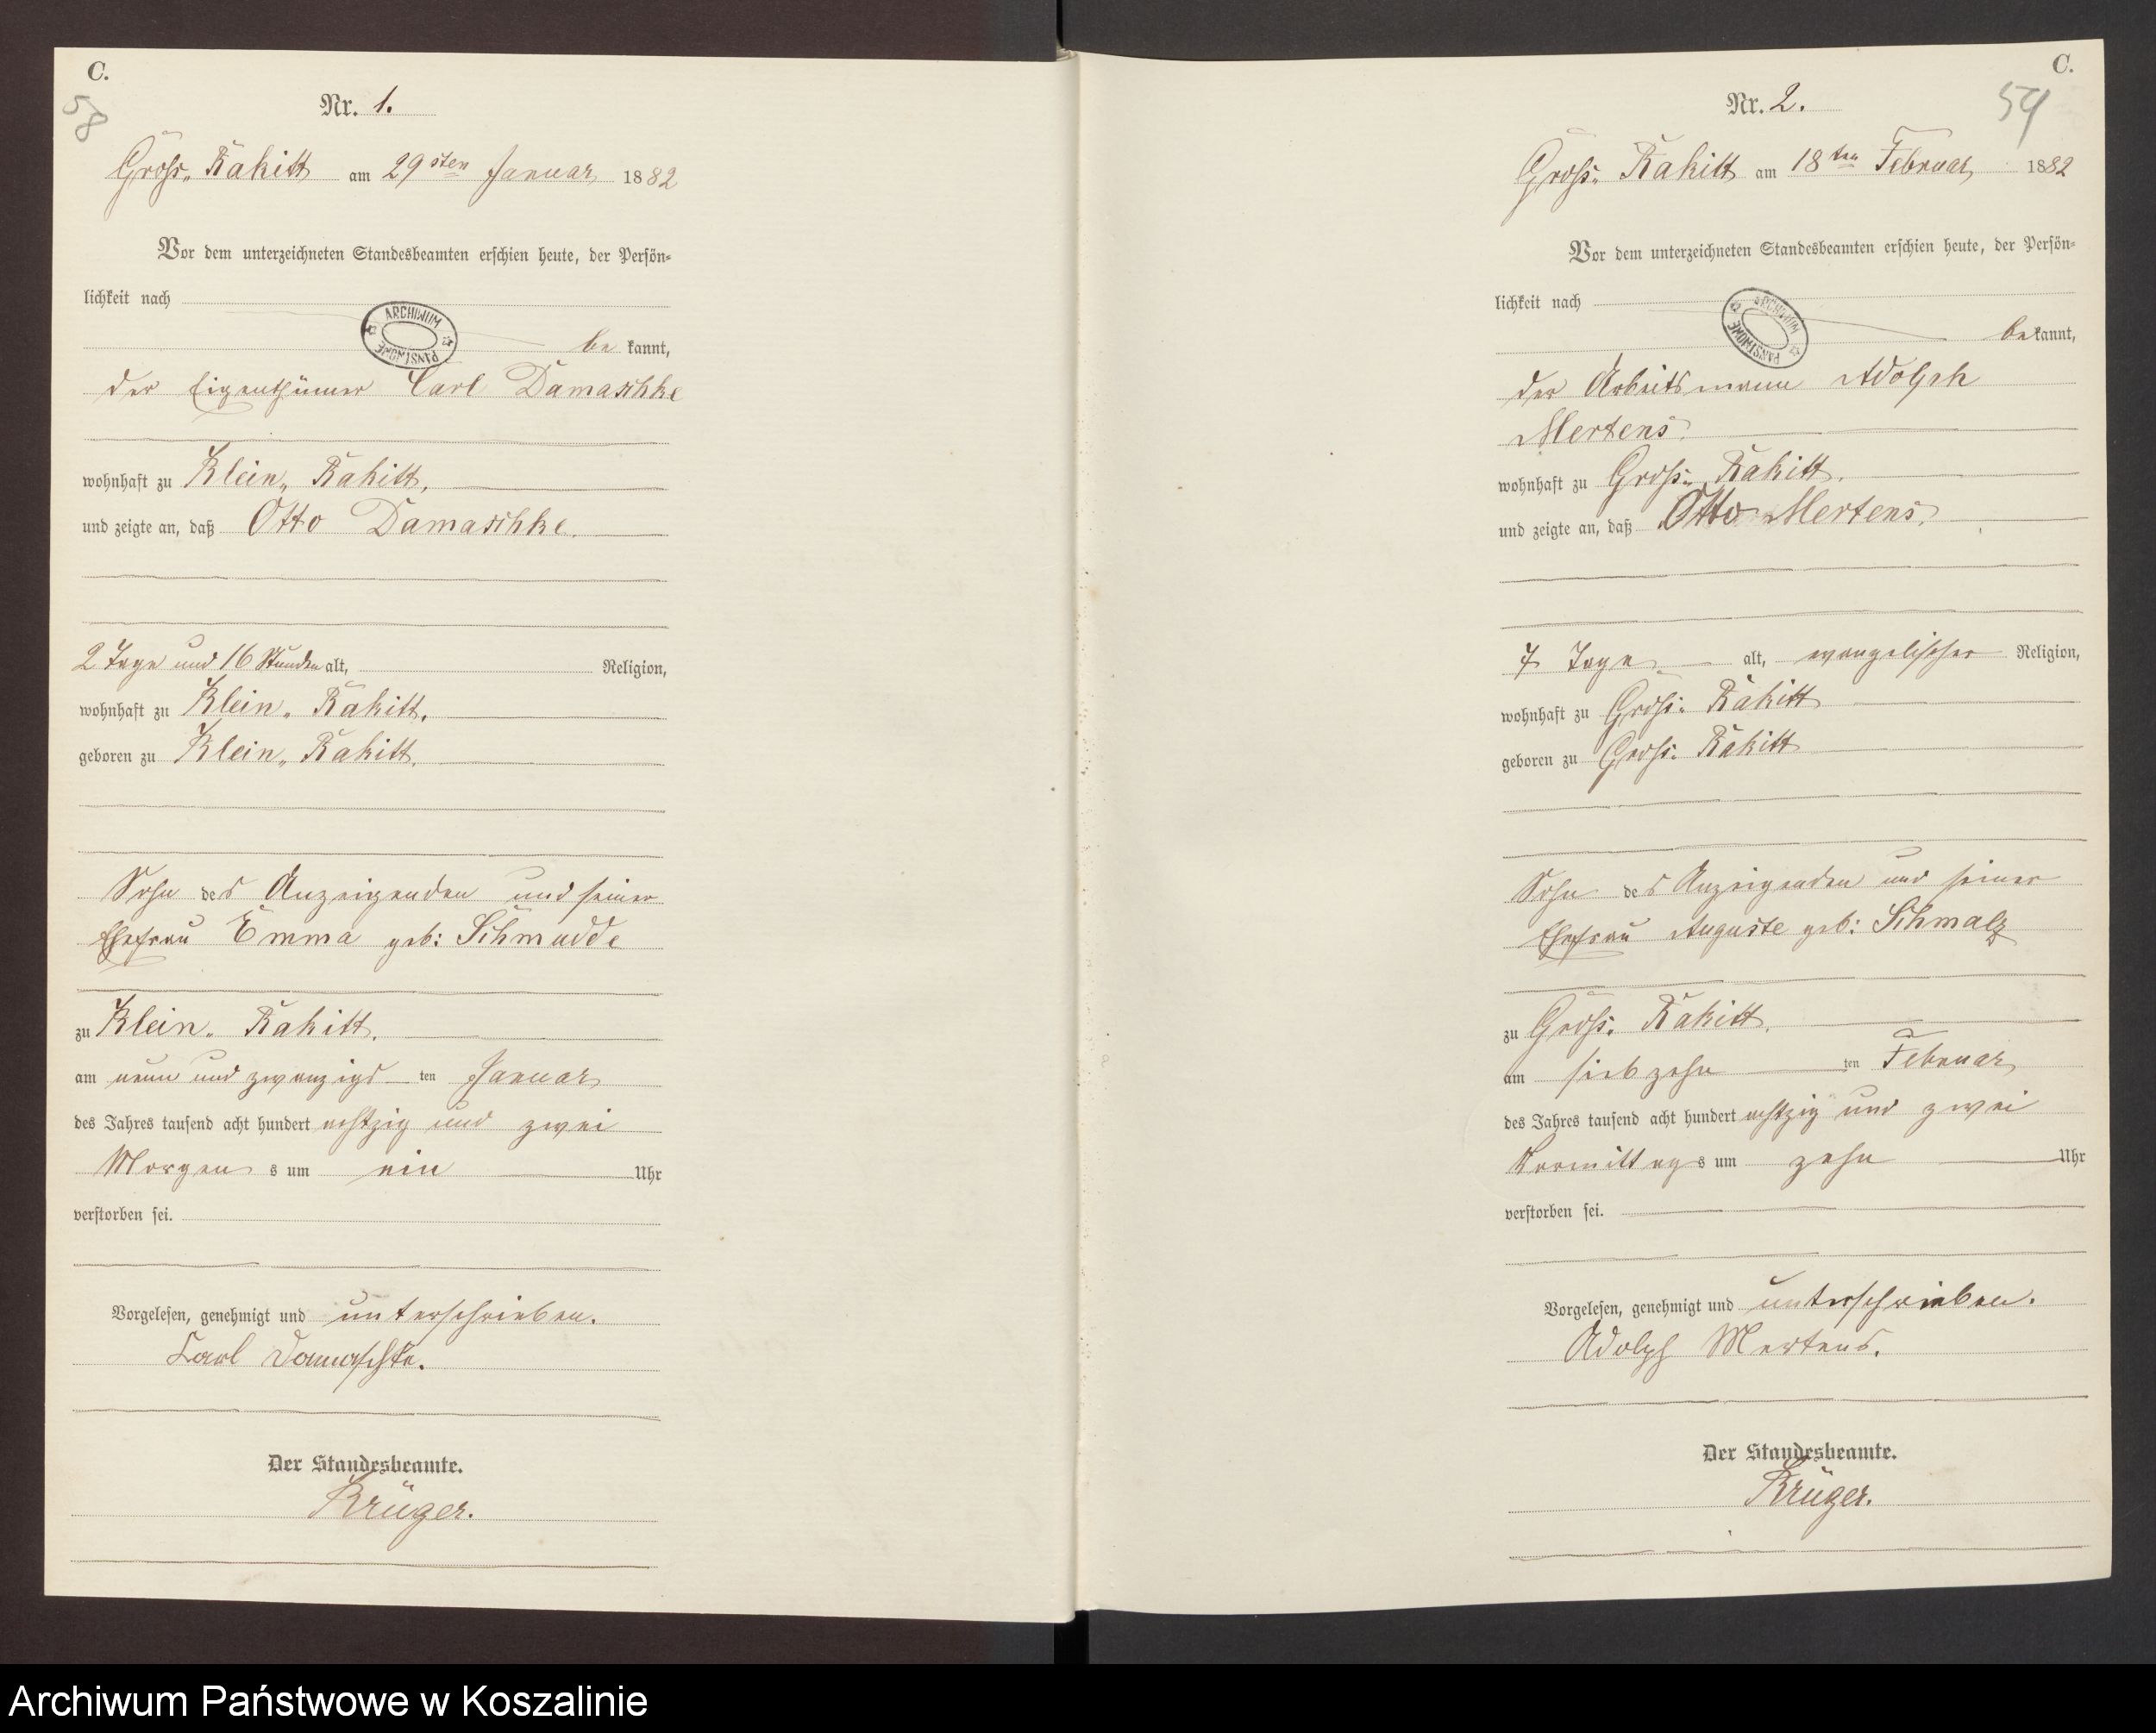 C.
58
Nr. 1.
Groß- Rakitt am 29sten Januar 1882
Vor dem unterzeichneten Standesbeamten erschien heute, der Persön-
lichkeit nach
be kannt,
der Eigenthümer Carl Damaschke
wohnhaft zu Klein- Rakitt,
und zeigte an, daß Otto Damaschke.
2 Tage und 16 Stunden alt, Religion,
wohnhaft zu Klein- Rakitt,
geboren zu Klein- Rakitt,
Sohn des Anzeigenden und seiner
Ehefrau Emma geb: Schmudde
zu Klein- Rakitt,
am neun und zwanzigs ten Januar
des Jahres tausend acht hundert achtzig und zwei
Morgen s um ein Uhr
verstorben sei.
Vorgelesen, genehmigt und unterschrieben.
Carl Damaschke.
Der Standesbeamte.
Krüger.
ARCHIWUM PAŃSTWOWE
C.
59
Nr. 2.
Groß- Rakitt am 18ten Februar 1882
Vor dem unterzeichneten Standesbeamten erschien heute, der Persön-
lichkeit nach
be kannt,
der Arbeitsmann Adolph
Mertens.
wohnhaft zu Groß- Rakitt.
und zeigte an, daß Otto Mertens.
7 Tage alt, evangelischer Religion,
wohnhaft zu Groß- Rakitt
geboren zu Groß- Rakitt
Sohn des Anzeigenden und seiner
Ehefrau Auguste geb: Schmalz
zu Groß- Rakitt.
am siebzehn ten Februar
des Jahres tausend acht hundert achtzig und zwei
Vormittags um zehn Uhr
verstorben sei.
Vorgelesen, genehmigt und unterschrieben.
Adolph Mertens.
Der Standesbeamte.
Krüger.
ARCHIWUM PAŃSTWOWE
Archiwum Państwowe w Koszalinie